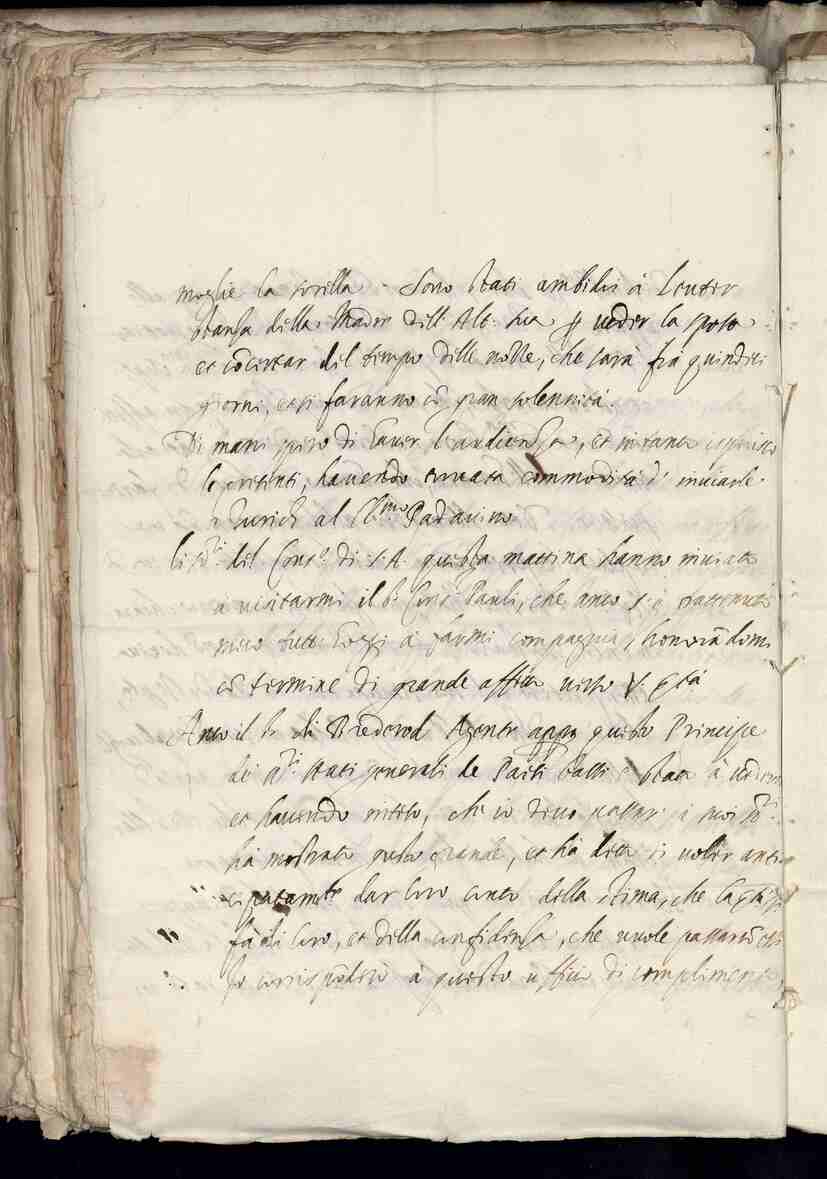 moglie la sorella. Sono stati ambidui à
stanza della Madre dell'Alt. sua p veder la sposa
et cõcertar del tempo delle nozze, che sarà frà quindeci
giorni, et si faranno cõ gran solennità.
Dimani spero di haver l'audienza, et in tanto espedisco
le presenti, havendo trovata commodità d'inviarle
à Zurich al Cl.mo Padavino.
Li ss.ri del Cons.o di S. A. questa mattina hanno inviato
à visitarmi il s.r Cons.r Pauli, che anco s'è trattenuto
meco tutt'hoggi à farmi compagnia, honorãdomi
cõ termine di grande affetto verso V. Ser.tà
Anco il s.r di Brederod Agente appo questo Principe
dei ss.ri stati generali de Paesi bassi è stato à vedermi
et havendo inteso, che io devo passar à suoi ss.ri
hà mostrato gusto grande, et hà detto di voler anti
cipatam.te dar loro conto della stima, che la Ser.tà
fà di loro, et della confidenza, che vuole passar cõ essi
Io corrisposi à questo ufficio di complimento